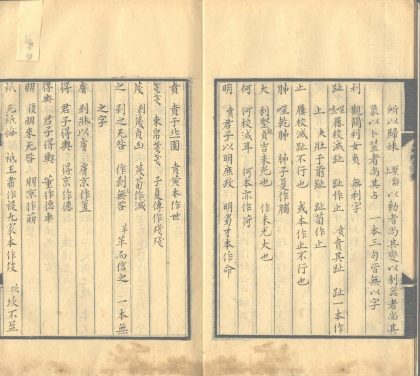 所以歸妹 繫辭上 以動者尚其變以制器者尚其
象以卜筮者尚其占 一本三句皆無以字
利 觀闚利女貞 無利字
趾 噬屨校滅趾 趾作止 賁賁其趾 趾一本作
止 夬壯于前趾 趾荀作止
止 屨校滅趾不行也 或本作止不行也
肺 噬乾肺 肺子夏作脯
大 利艱貞吉未光也 作未光大也
何 何校滅耳 何本亦作荷
明 賁君子以明庶政 明蜀才本作命
賁 賁于丘園 賁黃本作世
戔戔 束帛戔戔 子夏傳作殘殘
蔑 剝蔑貞凶 蔑荀作滅
之 剝之无咎 作剝無咎 革革而信之 一本無
之字
膚 剝牀以膚 膚京作簠
得 君子得輿 得京作德
得輿 君子得輿 董作德車
朋 復朋來无咎 朋京作崩
祇 无祇悔 祇王肅作禔九家本作 坎坎不盈